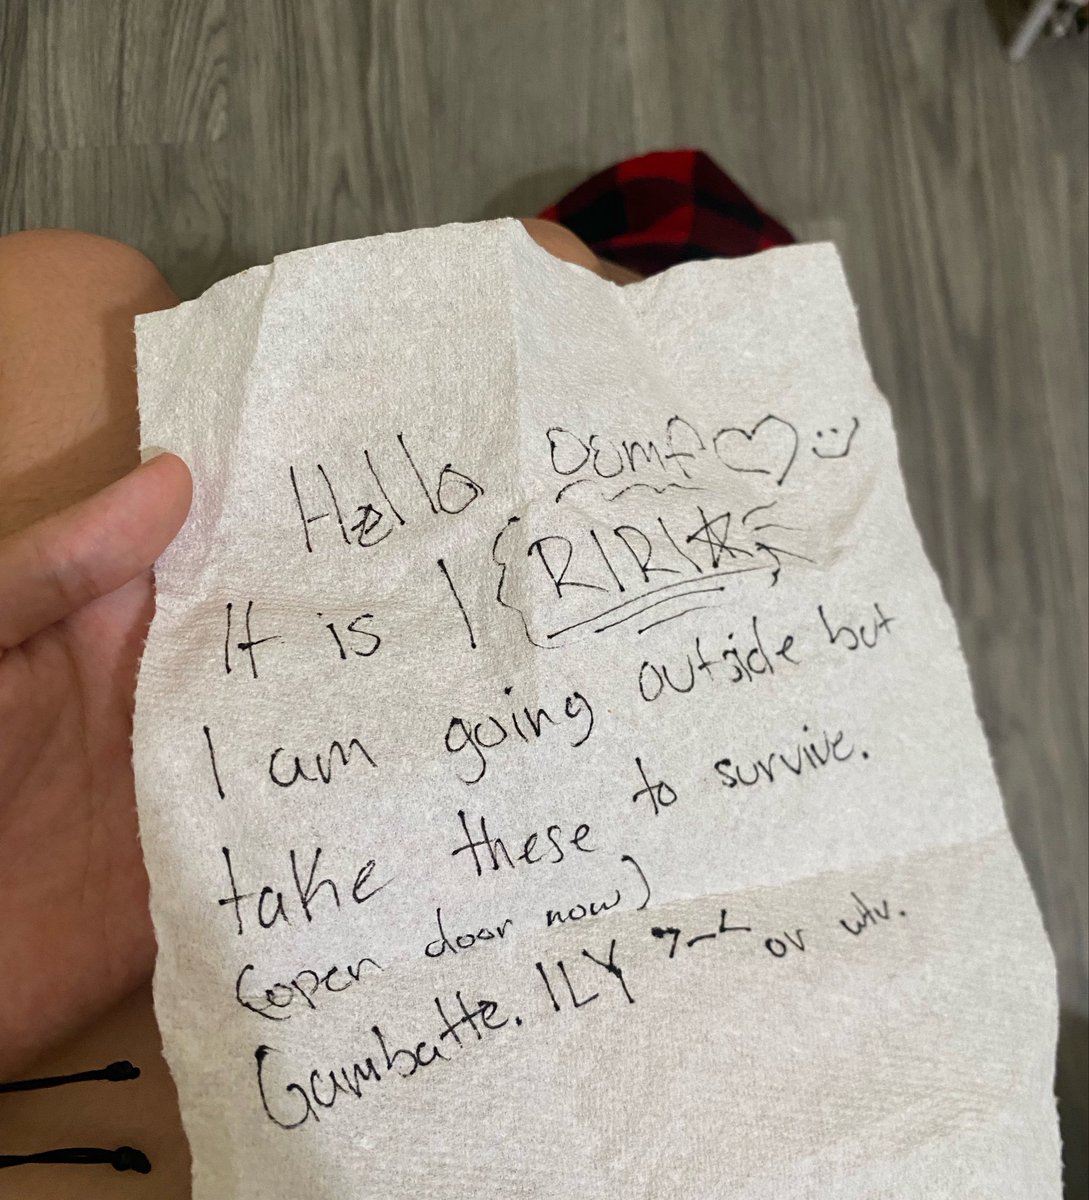 Hello Oomf ♡ :)
It is I RIRI☆
I am going outside but
take these to survive.
(open door now)
Gambatte. ILY 7-L or wtv.